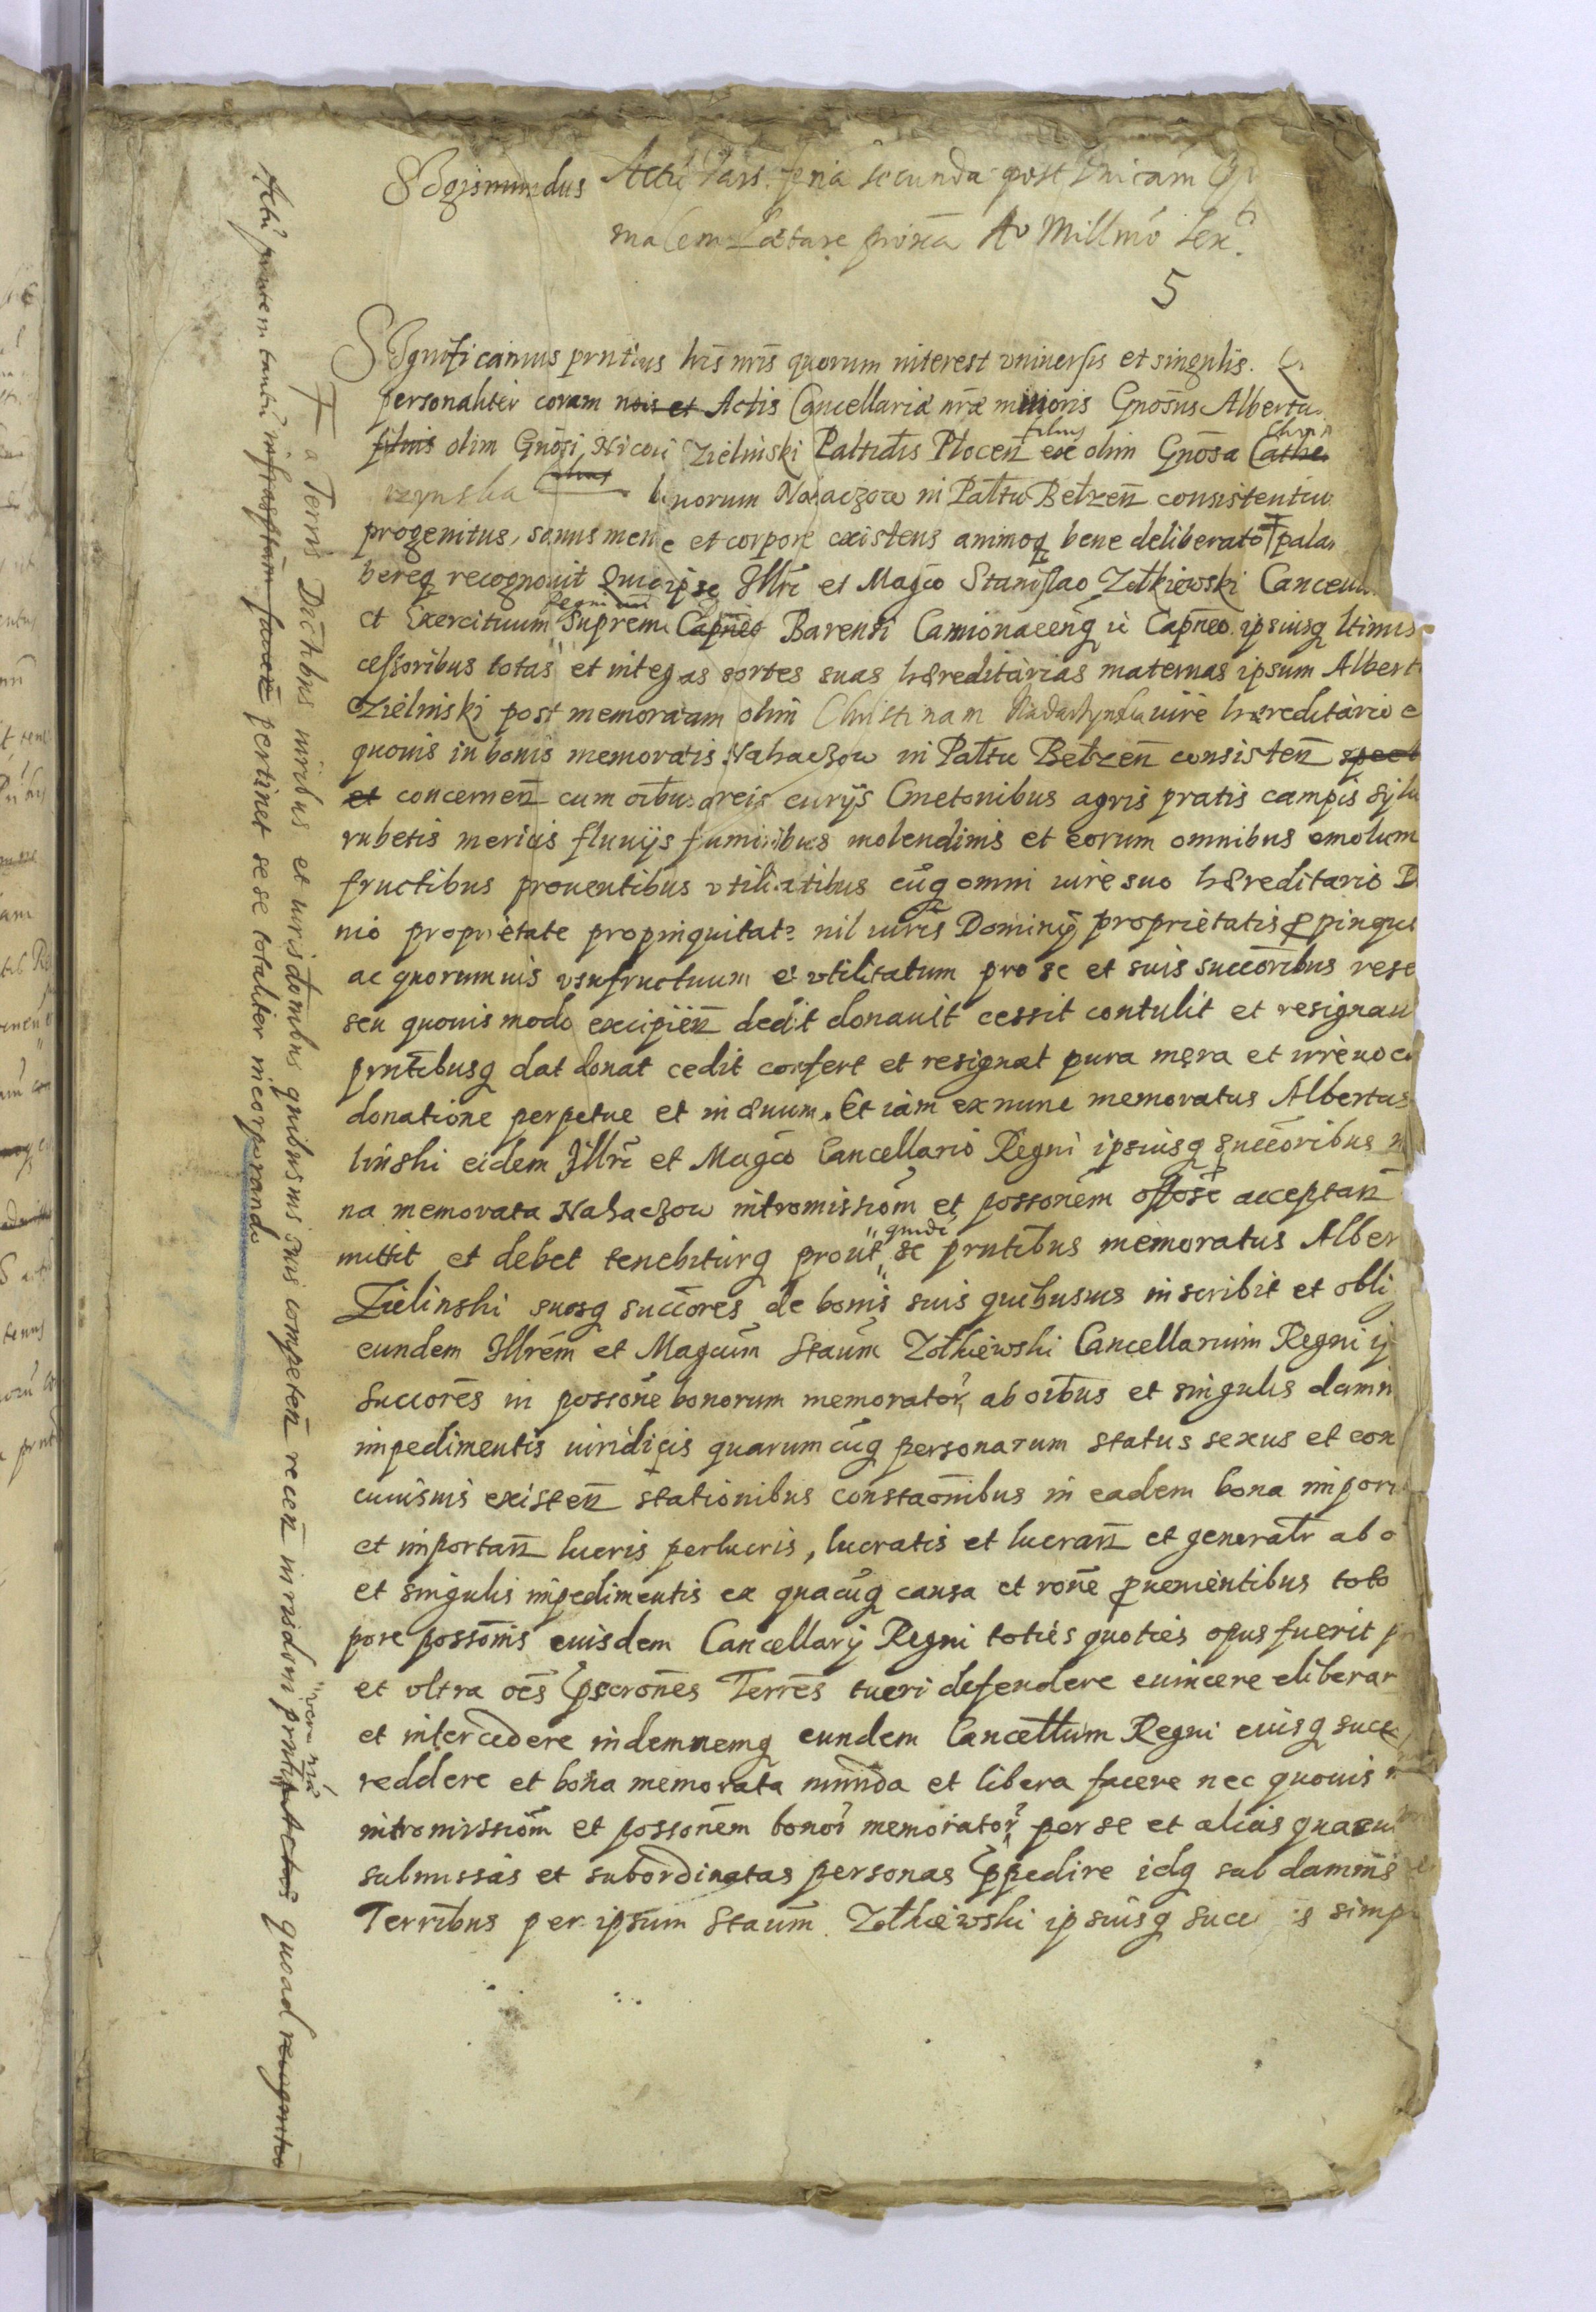 Sigismundus Actu Vars. feria secunda post Dnicam
malem Lætare proxa Ao Millmo Sex
5
Significamus prntibus lris nris quorum interest vniuersis et singulis.
personaliter coram nois et Actis Cancellariæ nræ minoris Gnosus Albertu
filius olim Gnosi Nicolai Zielinski Paltidis Plocen filius exe olim Gnosa Cathe
norum Nahaczow in Paltu Belzen consistentiu
progenitus, sanus mente et corpore existens animoq bene deliberato ┼ pala
bereq recognouit Quia ipse Illri et Magco Stanislao Zolkiewski Cancell
et Exercituum Regni Supremi Capneo Barensi Camionacenq ic Capneo ipsiusq ltimis
cessoribus totas et integras sortes suas hæreditarias maternas ipsum Albert
Zielinski post memoratam olim Christinam Nadarzynska iure hæreditario e
quouis in bonis memoratis Nahaczow in Paltu Belzen consisten spect
et concernen cum oibus areis curijs Cmetonibus agris pratis campis sylu
rubetis mericis fluuijs fluminibus molendinis et eorum omnibus emolum
fructibus prouentibus vtilitatibus cuq omni iure suo hæreditario D
nio proprietate propinquitate nil iuris Dominij proprietatis ppinqui
ac quorumuis vsufructuum et vtilitatum pro se et suis succoribus rese
seu quouis modo excipien dedit donauit cessit contulit et resignau
prntibusq dat donat cedit confert et resignat pura mera et irreuoca
donatione perpetue et in æuum. Et iam ex nunc memoratus Albertus
linski eidem Illri et Magco Cancellario Regni ipsiusq succoribus in
na memorata Nahaczow intromissiom et possonem offose acceptan
mittit et debet tenebiturq prout quidē se prntibus memoratus Alber
Zielinski suosq succores de bonis suis quibusuis inscribit et obli
eundem Illrem et Magcum Staum Zolkiewski Cancellarium Regni ip
Succores in possone bonorum memorator ab oibus et singulis damn
impedimentis iuridicis quarumcuq personarum status sexus et con
cuiusuis existen stationibus constaonibus in eadem bona impor
et importan lucris perlucris, lucratis et lucran et generalr ab o
et singulis impedimentis ex quacuq causa et rone puenientibus toto
pore possonis euisdem Cancellarij Regni toties quoties opus fuerit p
et vltra oes pscrones Terres tueri defendere euincere eliberar
et intercedere indemnemq eundem Cancellum Regni eiusq succ
reddere et bona memorata munda et libera facere nec quouis m
intromissiom et possonem bonor memorator per se et alias quascu
submissas et subordinatas personas ppedire idq sub damnis
Terribus per ipsum Staum Zolkiewski ipsiusq succ is simp
┼ a Terris Districtibus iuribus et iurisdonibus quibusuis suis competen recen in risdom prnti vera niæ Actus quoad recognitoo
Actu prntem tantu infrasptam facien pertinet se se totaliter incorporando